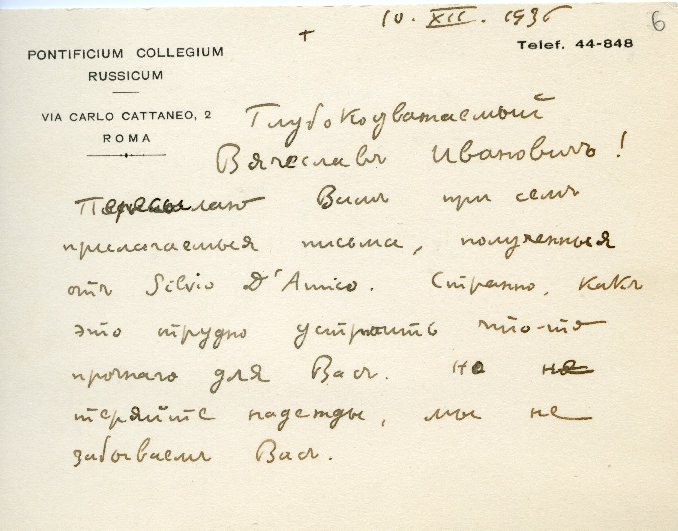 10. XII. 1936
6
+
PONTIFICIUM COLLEGIUM
RUSSICUM
Telef. 44-848
VIA CARLO CATTANEO, 2
ROMA
Глубокоуважаемый
Вячеславъ Ивановичъ!
Пересылаю Вамъ при семъ
прилагаемыя письма, полученныя
отъ Silvio D'Amico. Странно, какъ
это трудно устроить что-то
прочнаго для Васъ. Но не
теряйте надежды, мы не
забываемъ Васъ.